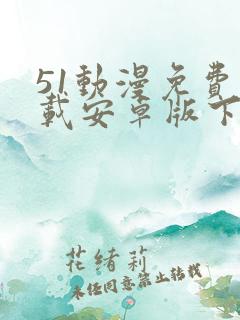 51動漫免費下
載安卓版下
花緒莉
未经同意禁止转载